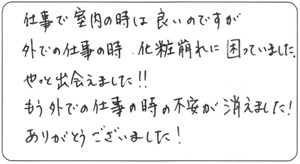 仕事で室内の時は良いのですが
外での仕事の時、化粧崩れに困っていました。
やっと出会えました!!
もう外での仕事の時の不安が消えました!
ありがとうございました!